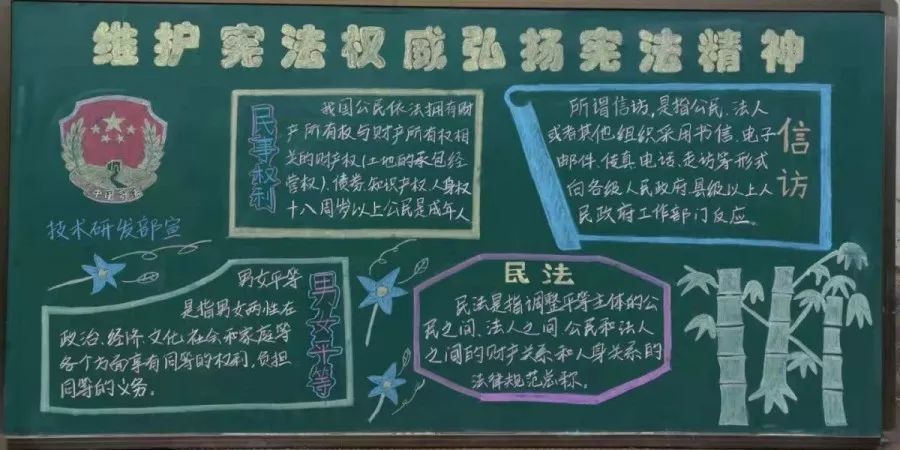 维护宪法权威弘扬宪法精神
技术研发部宣
民事权利
我国公民依法拥有财
产所有权与财产所有权相
关的财产权(土地的承包经
营权)、债券、知识产权、人身权
十八周岁以上公民是成年人
信访
所谓信访,是指公民、法人
或者其他组织采用书信、电子
邮件、传真、电话、走访等形式
向各级人民政府、县级以上人
民政府工作部门反应。
男女平等
男女平等
是指男女两性在
政治、经济、文化、社会和家庭等
各个方面享有同等的权利,负担
同等的义务。
民法
民法是指调整平等主体的公
民之间、法人之间、公民和法人
之间的财产关系和人身关系的
法律规范总称。